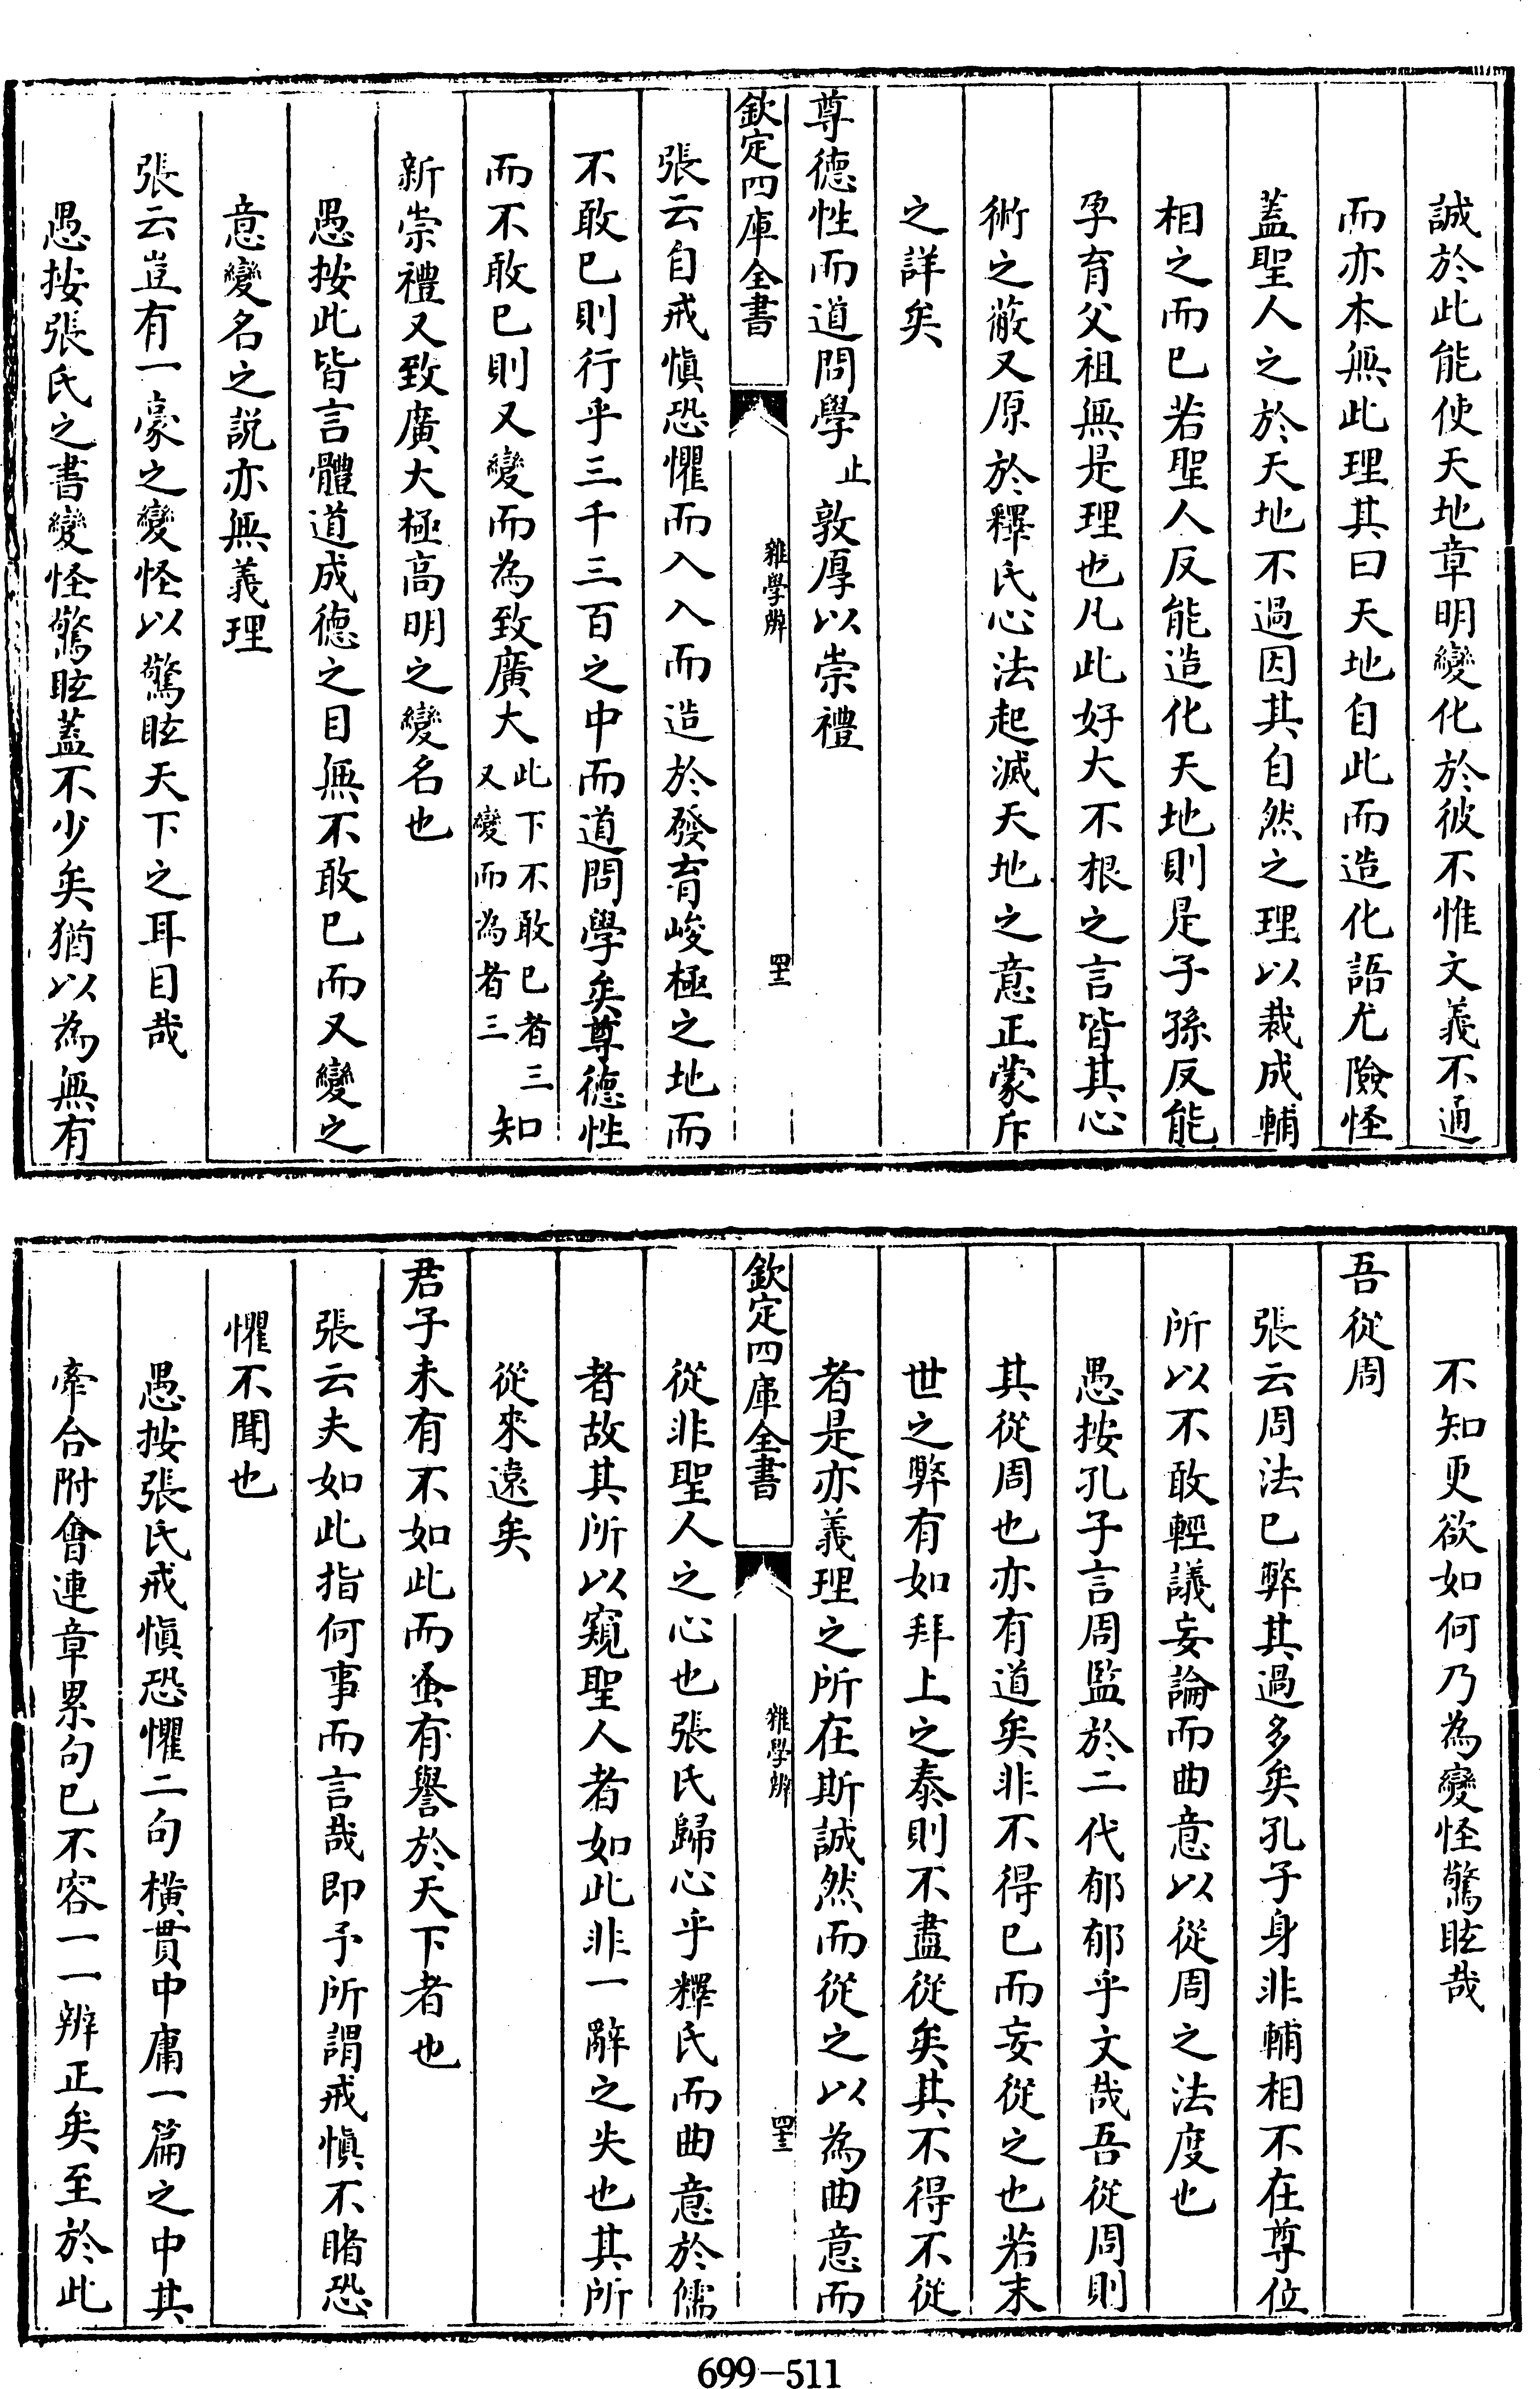 誠於此能使天地章明變化於彼不惟文義不通
而亦本無此理其曰天地自此而造化語尤險怪
蓋聖人之於天地不過因其自然之理以裁成輔
相之而已若聖人反能造化天地則是子孫反能
孕育父祖無是理也凡此好大不根之言皆其心
術之蔽又原於釋氏心法起滅天地之意正蒙斥
之詳矣
尊德性而道問學止敦厚以崇禮
欽定四庫全書
雜學辨
四十二
張云自戒慎恐懼而入入而造於發育峻極之地而
不敢已則行乎三千三百之中而道問學矣尊德性
而不敢已則又變而為致廣大此下不敢已者三又變而為者三知
新崇禮又致廣大極高明之變名也
愚按此皆言體道成德之目無不敢已而又變之
意變名之說亦無義理
張云豈有一豪之變怪以驚眩天下之耳目哉
愚按張氏之書變怪驚眩蓋不少矣猶以為無有
不知更欲如何乃為變怪驚眩哉
吾從周
張云周法已弊其過多矣孔子身非輔相不在尊位
所以不敢輕議妄論而曲意以從周之法度也
愚按孔子言周監於二代郁郁乎文哉吾從周則
其從周也亦有道矣非不得已而妄從之也若末
世之弊有如拜上之泰則不盡從矣其不得不從
者是亦義理之所在斯誠然而從之以為曲意而
欽定四庫全書
雜學辨
四十三
從非聖人之心也張氏歸心乎釋氏而曲意於儒
者故其所以窺聖人者如此非一辭之失也其所
從來遠矣
君子未有不如此而蚤有譽於天下者也
張云夫如此指何事而言哉即予所謂戒慎不睹恐
懼不聞也
愚按張氏戒慎恐懼二句橫貫中庸一篇之中其
牽合附會連章累句已不容一一辨正矣至於此
699-511